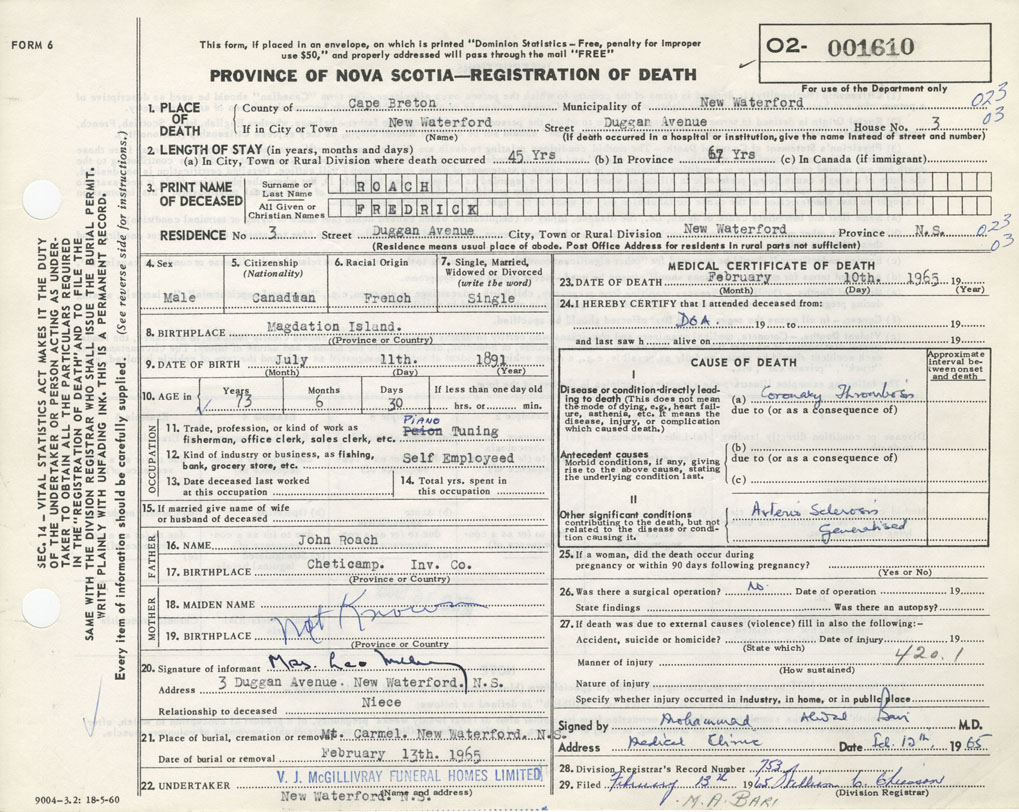 FORM 6
This form, if placed in an envelope, on which is printed "Dominion Statistics – Free, penalty for improper
use $50," and properly addressed will pass through the mail "FREE"
O2- 001610
For use of the Department only
PROVINCE OF NOVA SCOTIA—REGISTRATION OF DEATH
1. PLACE OF DEATH
County of Cape Breton Municipality of New Waterford
023
If in City or Town New Waterford Street Duggan Avenue House No. 3
03
(Name) (If death occurred in a hospital or institution, give the name instead of street and number)
2. LENGTH OF STAY (in years, months and days)
(a) In City, Town or Rural Division where death occurred 45 Yrs (b) In Province 67 Yrs (c) In Canada (if immigrant)
3. PRINT NAME OF DECEASED
Surname or Last Name ROACH
All Given or Christian Names FREDRICK
RESIDENCE No 3 Street Duggan Avenue City, Town or Rural Division New Waterford Province N.S.
023
03
(Residence means usual place of abode. Post Office Address for residents in rural parts not sufficient)
SEC. 14 – VITAL STATISTICS ACT MAKES IT THE DUTY
OF THE UNDERTAKER OR PERSON ACTING AS UNDER-
TAKER TO OBTAIN ALL THE PARTICULARS REQUIRED
IN THE "REGISTRATION OF DEATH" AND TO FILE THE
SAME WITH THE DIVISION REGISTRAR WHO SHALL ISSUE THE BURIAL PERMIT.
WRITE PLAINLY WITH UNFADING INK. THIS IS A PERMANENT RECORD.
Every item of information should be carefully supplied. (See reverse side for instructions.)
4. Sex
Male
5. Citizenship
(Nationality)
Canadian
6. Racial Origin
French
7. Single, Married,
Widowed or Divorced
(write the word)
Single
8. BIRTHPLACE Magdation Island.
((Province or Country)
9. DATE OF BIRTH July 11th. 1891
(Month) (Day) (Year)
10. AGE in Years Months Days If less than one day old
73 6 30 hrs. or min.
OCCUPATION
11. Trade, profession, or kind of work as PIANO
fisherman, office clerk, sales clerk, etc. Paion Tuning
12. Kind of industry or business, as fishing,
bank, grocery store, etc. Self Employeed
13. Date deceased last worked
at this occupation
14. Total yrs. spent in
this occupation
15. If married give name of wife
or husband of deceased
FATHER
16. NAME John Roach
17. BIRTHPLACE Cheticamp. Inv. Co.
(Province or Country)
MOTHER
18. MAIDEN NAME
19. BIRTHPLACE Not Known
(Province or Country)
20. Signature of informant Mrs. Leo
Address 3 Duggan Avenue. New Waterford. N.S.
Relationship to deceased Niece
21. Place of burial, cremation or removal Mt. Carmel. New Waterford. N.S.
Date of burial or removal February 13th. 1965
22. UNDERTAKER V. J. McGILLIVRAY FUNERAL HOMES LIMITED
New Waterford. N.S.
(Name and address)
9004–3.2: 18-5-60
MEDICAL CERTIFICATE OF DEATH
23. DATE OF DEATH February 10th. 1965 19
(Month) (Day) (Year)
24. I HEREBY CERTIFY that I attended deceased from:
DOA. 19 to 19
and last saw h alive on 19
CAUSE OF DEATH
Approximate
interval be-
tween onset
and death
I
Disease or condition directly lead-
ing to death (This does not mean
the mode of dying, e.g., heart fail-
ure, asthenia, etc. It means the
disease, injury, or complication
which caused death.)
(a) Coronary Thrombosis
due to (or as a consequence of)
Antecedent causes
Morbid conditions, if any, giving
rise to the above cause, stating
the underlying condition last.
(b)
due to (or as a consequence of)
(c)
II
Other significant conditions
contributing to the death, but not
related to the disease or condi-
tion causing it.
Arterio Sclerosis
Generalised
25. If a woman, did the death occur during
pregnancy or within 90 days following pregnancy?
(Yes or No)
26. Was there a surgical operation? No. Date of operation 19
State findings Was there an autopsy?
27. If death was due to external causes (violence) fill in also the following:–
Accident, suicide or homicide? Date of injury 19
(State which)
420.1
Manner of injury
(How sustained)
Nature of injury
Specify whether injury occurred in industry, in home, or in public place
Signed by Mohammad Bari M.D.
Address Medical Clinic Date Feb. 12th, 1965
28. Division Registrar's Record Number 753
29. Filed February 13th 1965 William C. Gleason
(Division Registrar)
M. A. BARI